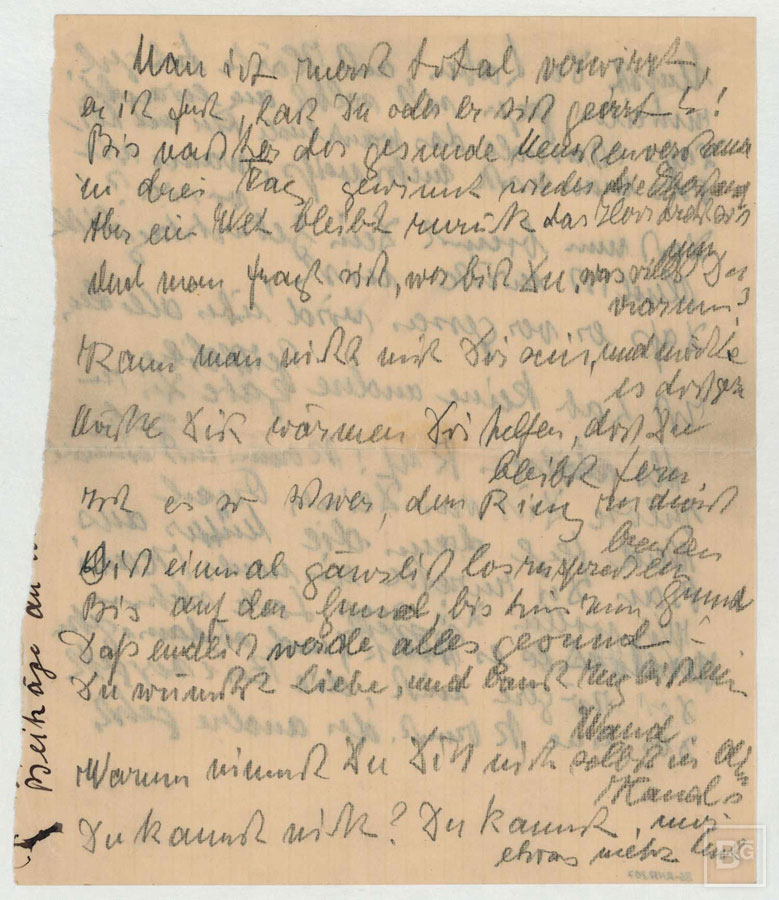 Man ist meist total verwirrt,
er ist fest, hat Du oder er sich geirrt!
Bis nachher der gesunde Menschenverstand
in drei Tag gewinnt wieder die
Aber ein Weh bleibt zurück das
um
Und man fragt sich, wer bist Du, was willst Du
warum?
Kann man nicht mit Dir sein, und möchte
es doch gern
Möchte Dich wärmen Dir helfen, doch Du
bleibst fern
Ist es so schwer, den Ring
brechen
Dich einmal gänzlich loszusprechen
Bis auf den Grund, bis hin zum Grund
Daß endlich werde alles gesund –
Du wünschst Liebe, und baust ringt eine
Wand
Warum nimmst Du Dich nicht selbst in die
Hand
Du kannst nicht? Du kannst, nur
etwas mehr Lust
Beiträge an
BRG